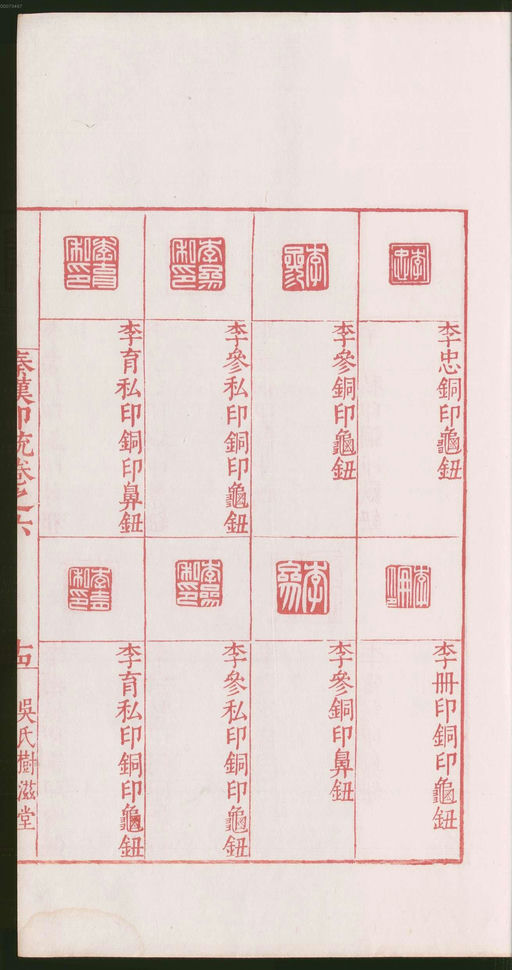 李忠銅印龜鈕
李參銅印龜鈕
李參私印銅印龜鈕
李育私印銅印鼻鈕
李冊印銅印龜鈕
李參銅印鼻鈕
李參私印銅印龜鈕
李育私印銅印龜鈕
秦漢印統卷之六
十四
吳氏樹滋堂
00073467